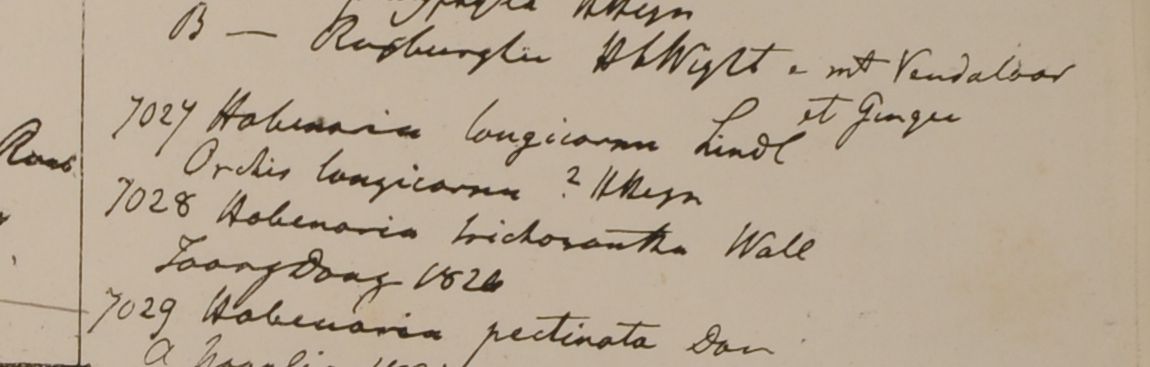 HHeyn
B — Roxburghii HbWight e mt Vendaloor
et Gingee
7027 Habenaria longicornu Lindl
Roxb
Orchis longicornu ? HHeyn
7028 Habenaria trichosantha Wall
TaongDong 1826
7029 Habenaria pectinata Don
a